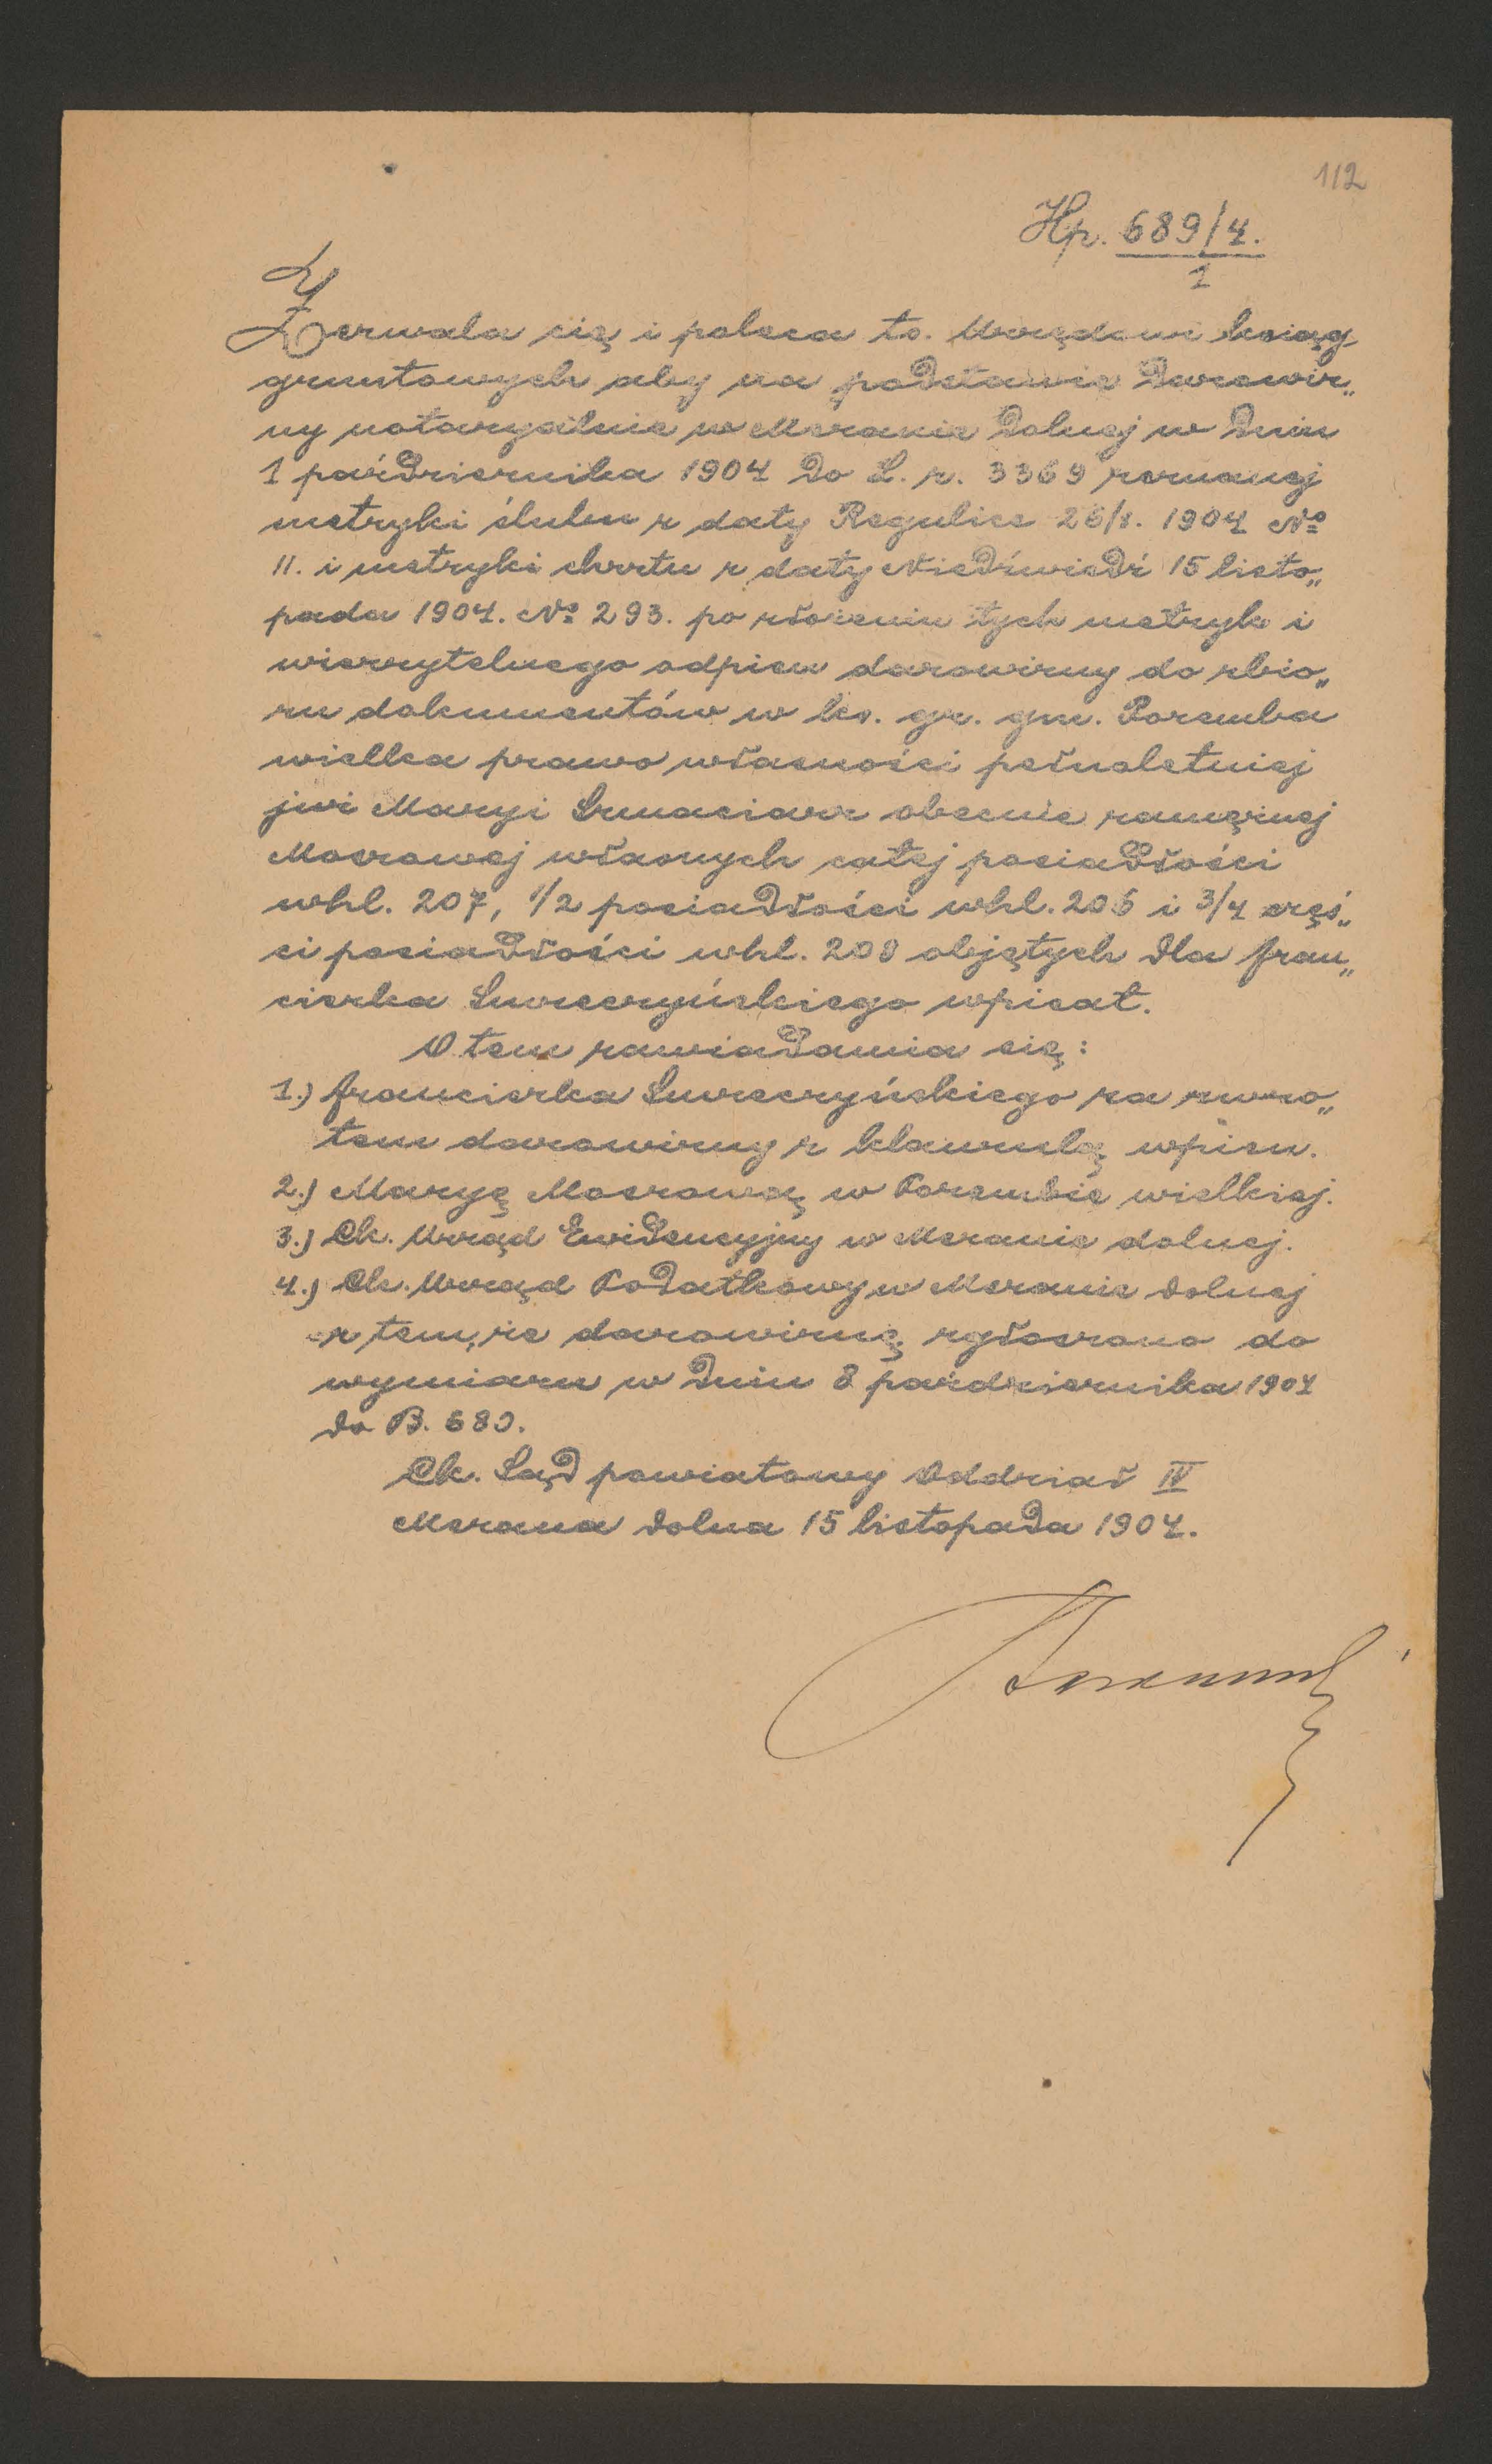 112
Hp. 689/4.
1
Zezwala się i poleca to. Urzędowi ksiąg
gruntowych aby na podstawie Darowiz„
ny notaryalnie w Mszanie Dolnej w Dniu
1 października 1904 Do L. r. 3369 zeznanej
metryki ślubu z daty Regulice 26/8. 1904 No
11. i metryki chrztu z daty Niedźwiedź 15 listo„
pada 1904. No 293. po złożeniu tych metryk i
wierzytelnego odpisu darowizny do zbio„
ru dokumentów w ks. gr. gm. Poremba
wielka prawo własności pełnoletniej
już Maryi Szmaciarz obecnie zamężnej
własnych całej posiadłości
whl. 207, 1/2 posiadłości whl. 206 i 3/4 częś„
ci posiadłości whl. 208 objętych dla Fran„
ciszka Smreczyńskiego wpisał.
O tem zawiadamia się:
1.) Franciszka Smreczyńskiego za zwro„
tem darowizny z klauzulą wpisu.
2.) Maryę w Porembie wielkiej.
3.) Ck. Urząd Ewidencyjny w Mszanie dolnej.
4.) Ck. Urząd Podatkowy w Mszanie Dolnej
z tem, że darowiznę zgłoszono do
wymiaru w Dniu 8 października 1904
Do B. 680.
Ck. Sąd powiatowy Oddział IV
Mszana Dolna 15 listopada 1904.